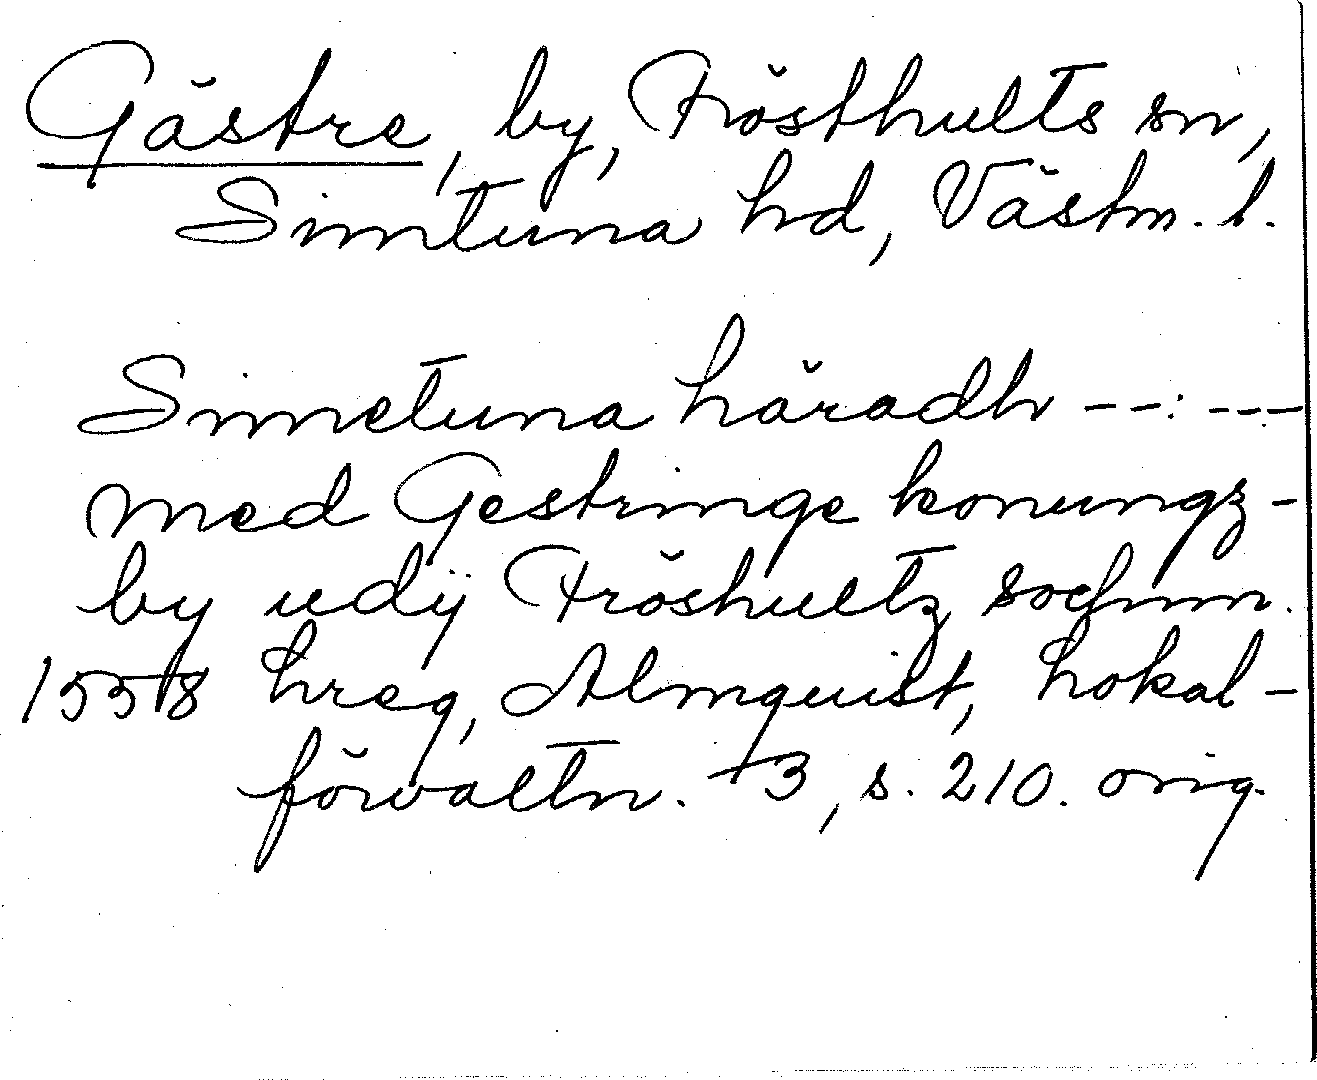 Gästre, by, Frösthults sn,
Simtuna hd, Västm. l.
Simetuna häradh --:---
med Gestringe konungz-
by udij Fröshultz sochnn.
1558 hreg, Almquist, Lokal-
förvaltn. 3, s. 210. orig.